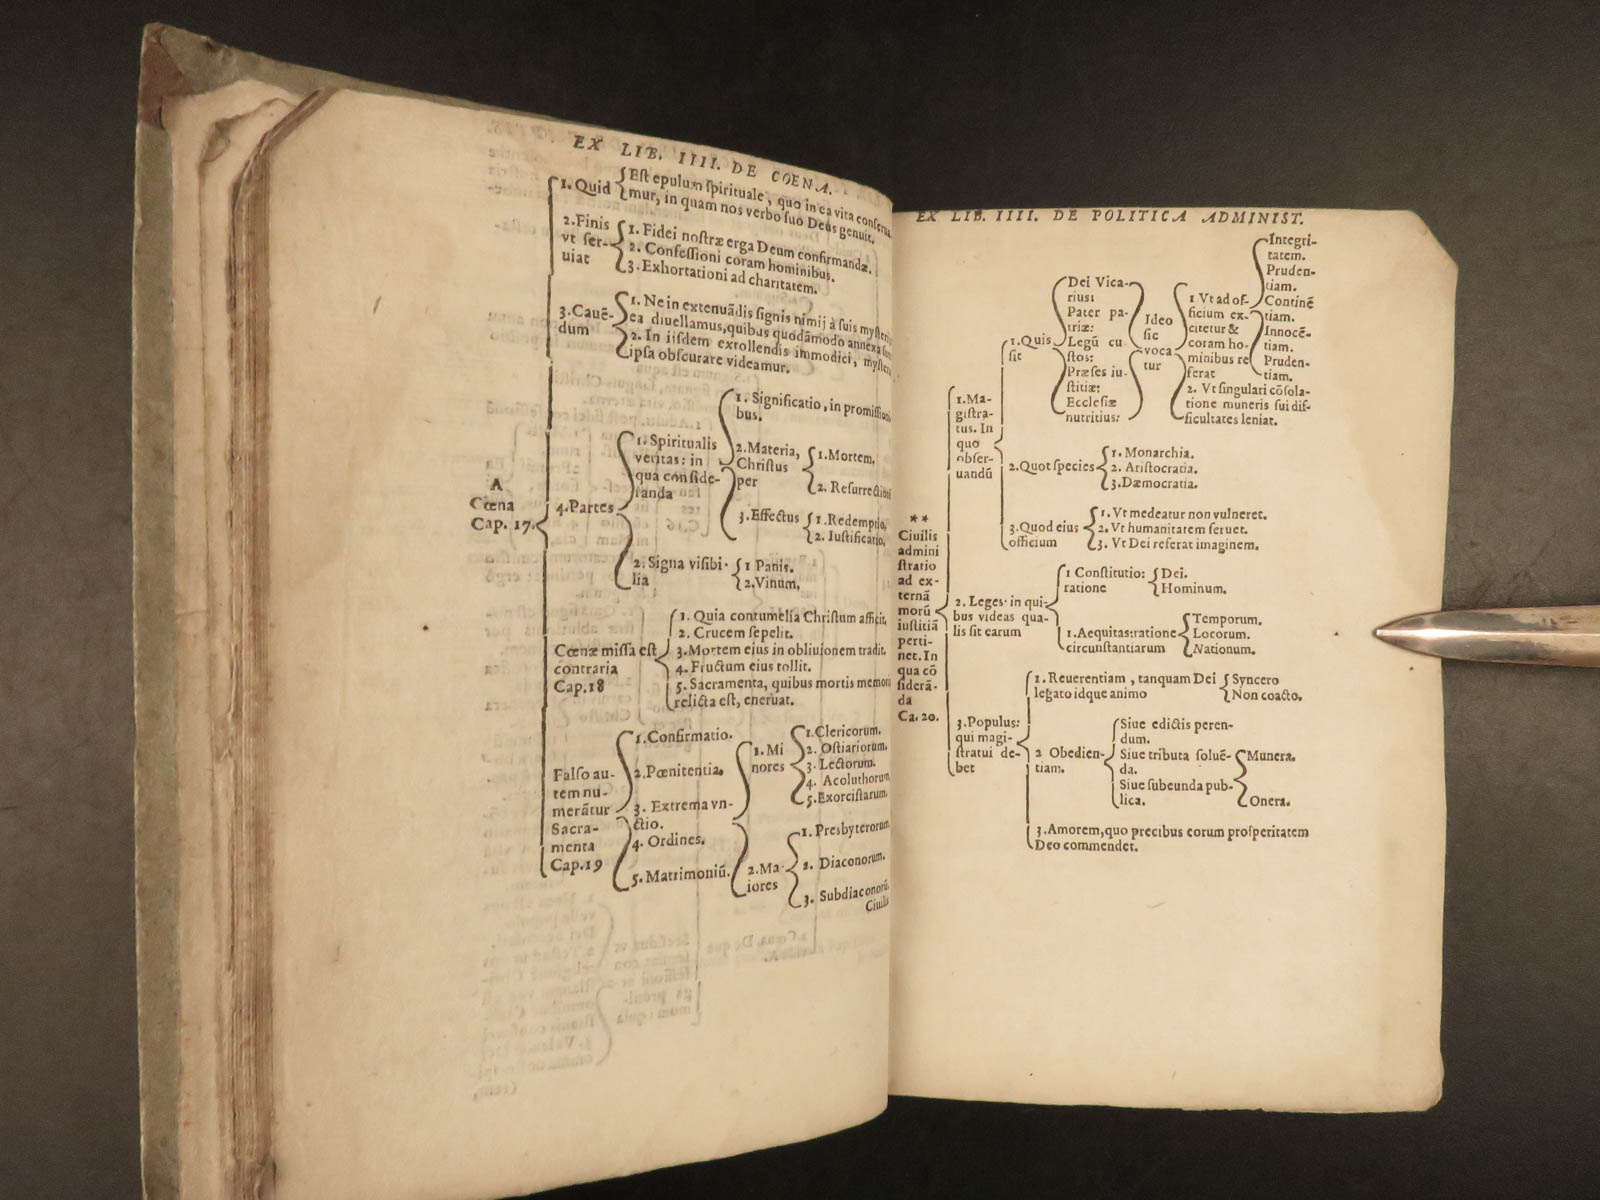 EX LIB. IIII. DE COENA.
1. Quid
Est epulum spirituale, quo in ea vita conserua
mur, in quam nos verbo suo Deus genuit.
2. Finis
vt ser-
uiat
1. Fidei nostræ erga Deum confirmandæ.
2. Confessioni coram hominibus.
3. Exhortationi ad charitatem.
3. Cauē-
dum
1. Ne in extenuādis signis nimij à suis mysteri
ea diuellamus, quibus quodāmodo annexa
2. In iisdem extollendis immodici, mysteri
ipsa obscurare videamur.
A
Cœna
Cap. 17.
4. Partes
1. Spiritualis
veritas: in
qua conside-
randa
1. Significatio, in promissioni
bus.
2. Materia,
Christus
per
1. Mortem.
2. Resurrectioné
3. Effectus
1. Redemptio,
2. Iustificatio,
2. Signa visibi-
lia
1 Panis.
2. Vinum,
Cœnæ missa est
contraria
Cap. 18
1. Quia contumelia Christum afficit,
2. Crucem sepelit.
3. Mortem eius in obliuionem tradit.
4. Fructum eius tollit.
5. Sacramenta, quibus mortis memori
relicta est, eneruat.
Falso au-
tem nu-
merātur
Sacra-
menta
Cap. 19
1. Confirmatio.
2. Pœnitentia.
3. Extrema vn-
ctio.
4. Ordines.
5. Matrimoniū.
1. Mi
nores
1. Clericorum.
2. Ostiariorum.
3. Lectorum.
4. Acoluthorum
5. Exorcistarum.
2. Ma-
iores
1. Presbyterorum.
2. Diaconorum.
3. Subdiaconorū.
Ciuilis
EX LIB. IIII. DE POLITICA ADMINIST.
**
Ciuilis
admini
stratio
ad ex-
ternā
morū
iustitiā
perti-
net. In
qua cō
siderā-
da
Ca. 20.
1. Ma-
gistra-
tus. In
quo
obser-
uandū
1. Quis
sit
Dei Vica-
rius:
Pater pa-
triæ:
Legū cu
stos:
Præses iu-
stitiæ:
Ecclesiæ
nutritius:
Ideo
sic
voca
tur
1 Vt ad of-
ficium ex-
citetur &
coram ho-
minibus re
ferat
Integri-
tatem.
Pruden-
tiam.
Continē
tiam.
Innocē-
tiam.
Pruden-
tiam.
2. Vt singulari cōsola-
tione muneris sui dif-
ficultates leniat.
2. Quot species
1. Monarchia.
2. Aristocratia.
3. Dæmocratia.
3. Quod eius
officium
1. Vt medeatur non vulneret.
2. Vt humanitatem seruet.
3. Vt Dei referat imaginem.
2. Leges: in qui-
bus videas qua-
lis sit earum
1 Constitutio:
ratione
Dei.
Hominum.
1. Aequitas: ratione
circunstantiarum
Temporum.
Locorum.
Nationum.
3. Populus:
qui magi-
stratui de-
bet
1. Reuerentiam, tanquam Dei
legato idque animo
Syncero
Non coacto.
2 Obedien-
tiam.
Siue edictis peren-
dum.
Siue tributa soluē-
da.
Siue subeunda pub-
lica.
Munera.
Onera.
3. Amorem, quo precibus eorum prosperitatem
Deo commendet.